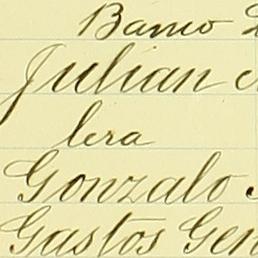 Banco
Julian
lera
Gonzalo
Gastos Gen